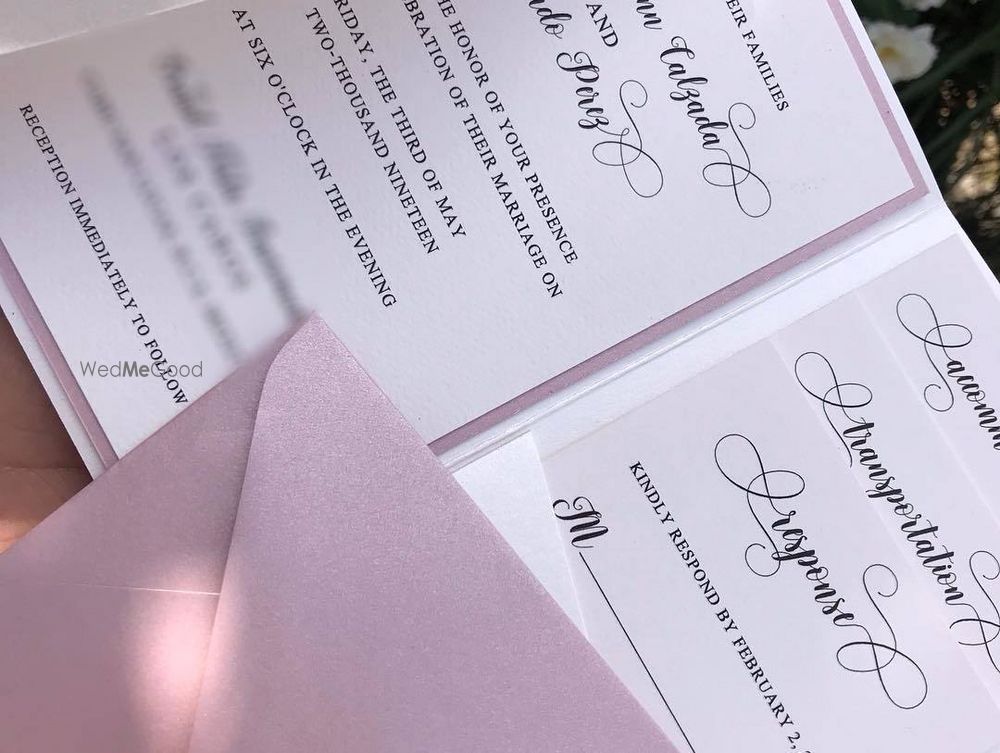 EIR FAMILIES
nn Calzada
AND
do Perez
HE HONOR OF YOUR PRESENCE
BRATION OF THEIR MARRIAGE ON
RIDAY, THE THIRD OF MAY
TWO-THOUSAND NINETEEN
AT SIX O'CLOCK IN THE EVENING
RECEPTION IMMEDIATELY TO FOLLOW
WedMeGood
accomm
transportation
response
KINDLY RESPOND BY FEBRUARY 2,
M